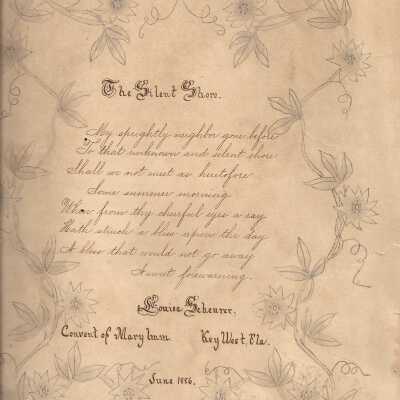 The Silent Shore.
My sprightly neighbor gone before
To that unknown and silent shore
Shall we not meet as heretofore
Some summer morning
When from thy cheerful eyes a ray
Hath struck a bliss upon the day
A bliss that would not go away
A sweet forewarning.
Louise Scheurer.
Convent of Mary Imm. Key West, Fla.
June 1886.